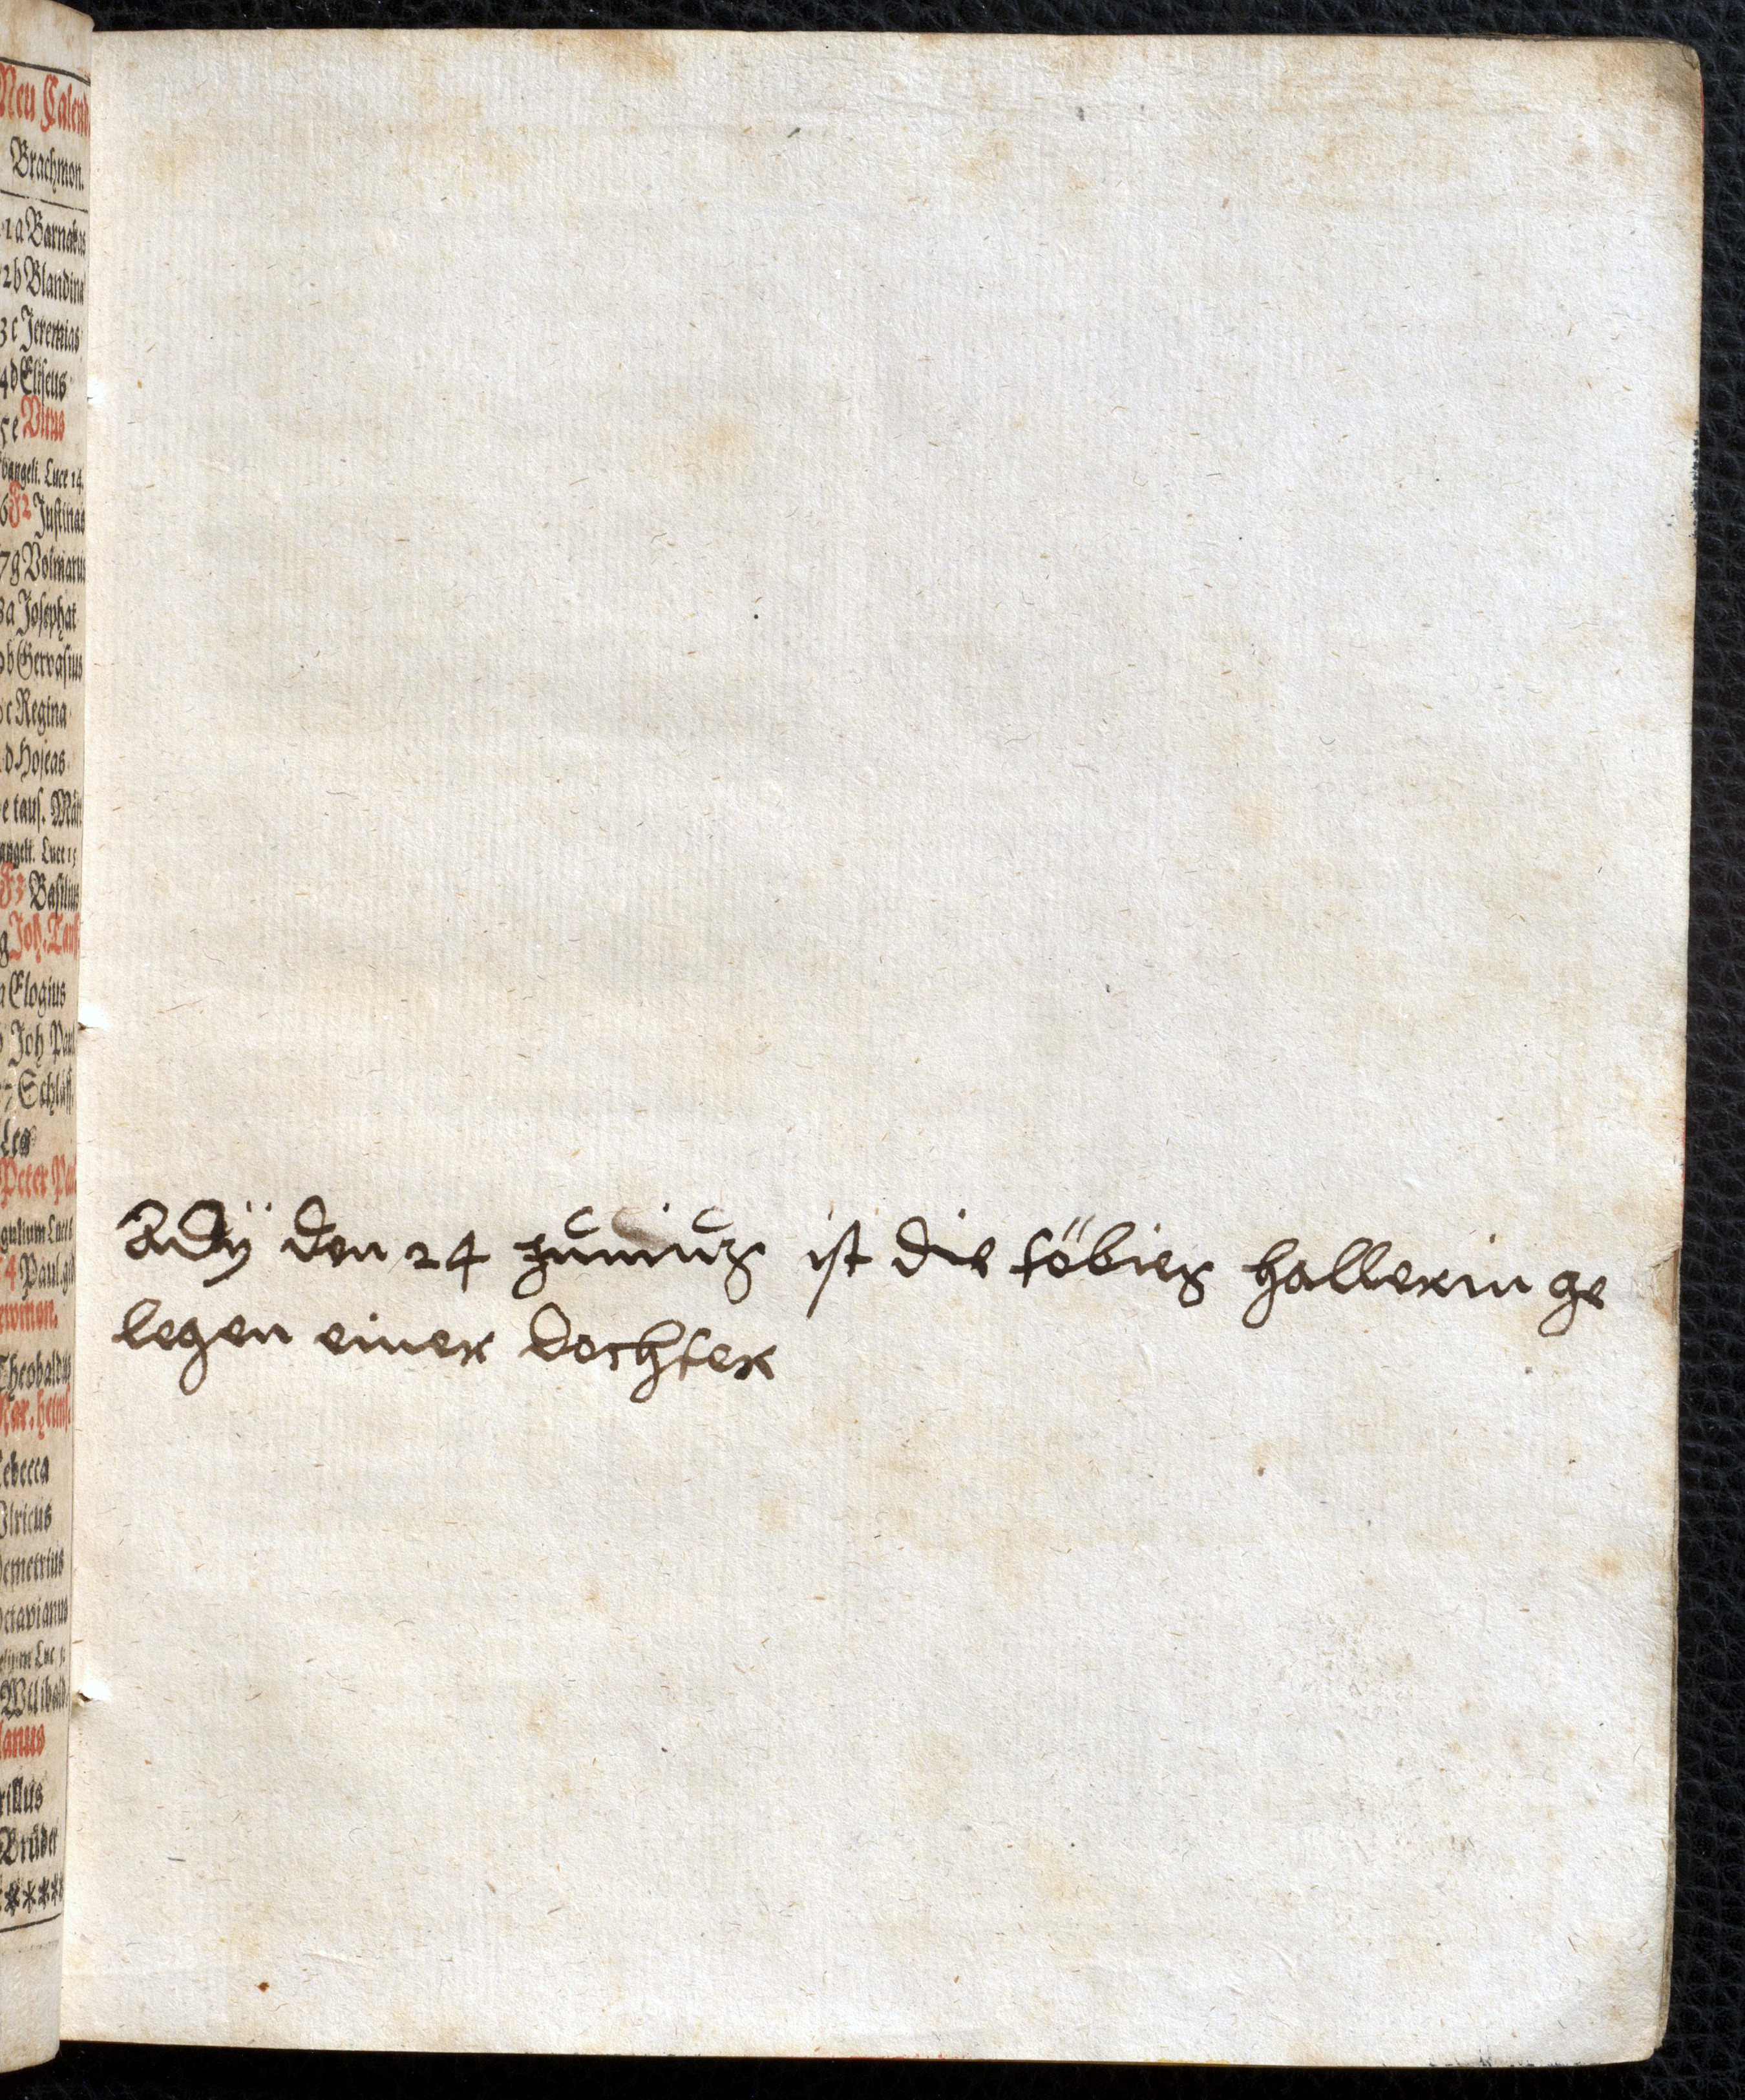 Neu Calend
Brachmon.
1a Barnabas
2b Blandina
3c Jeremias
4d Eliseus
5e Vitus
vangeli. Luce 14.
6F2 Justinas
7g Volmarus
8a Josephat
9b Gervasius
c Regina
d Hoseas
e taus. Märt
angeli. Luce 15
F3 Basilius
g Joh. Tauf
a Elogius
Joh Paul
7 Schläff
Leo
Peter Pau
4 Paul. ged
ewmon.
Theobaldus
Mar. heims
Rebecca
Ulricus
Demetrius
Octavianus
Wilibald
lianus
Brüder
*****
Adÿ den 24 zuniuz ist die töbies hallerin ge
legen einer dochter